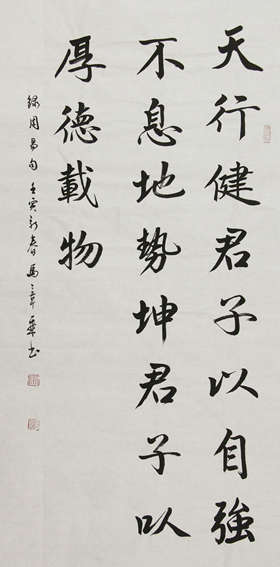 天行健君子以自強
不息地勢坤君子以
厚德載物
錄周易句壬寅新春馬三平書